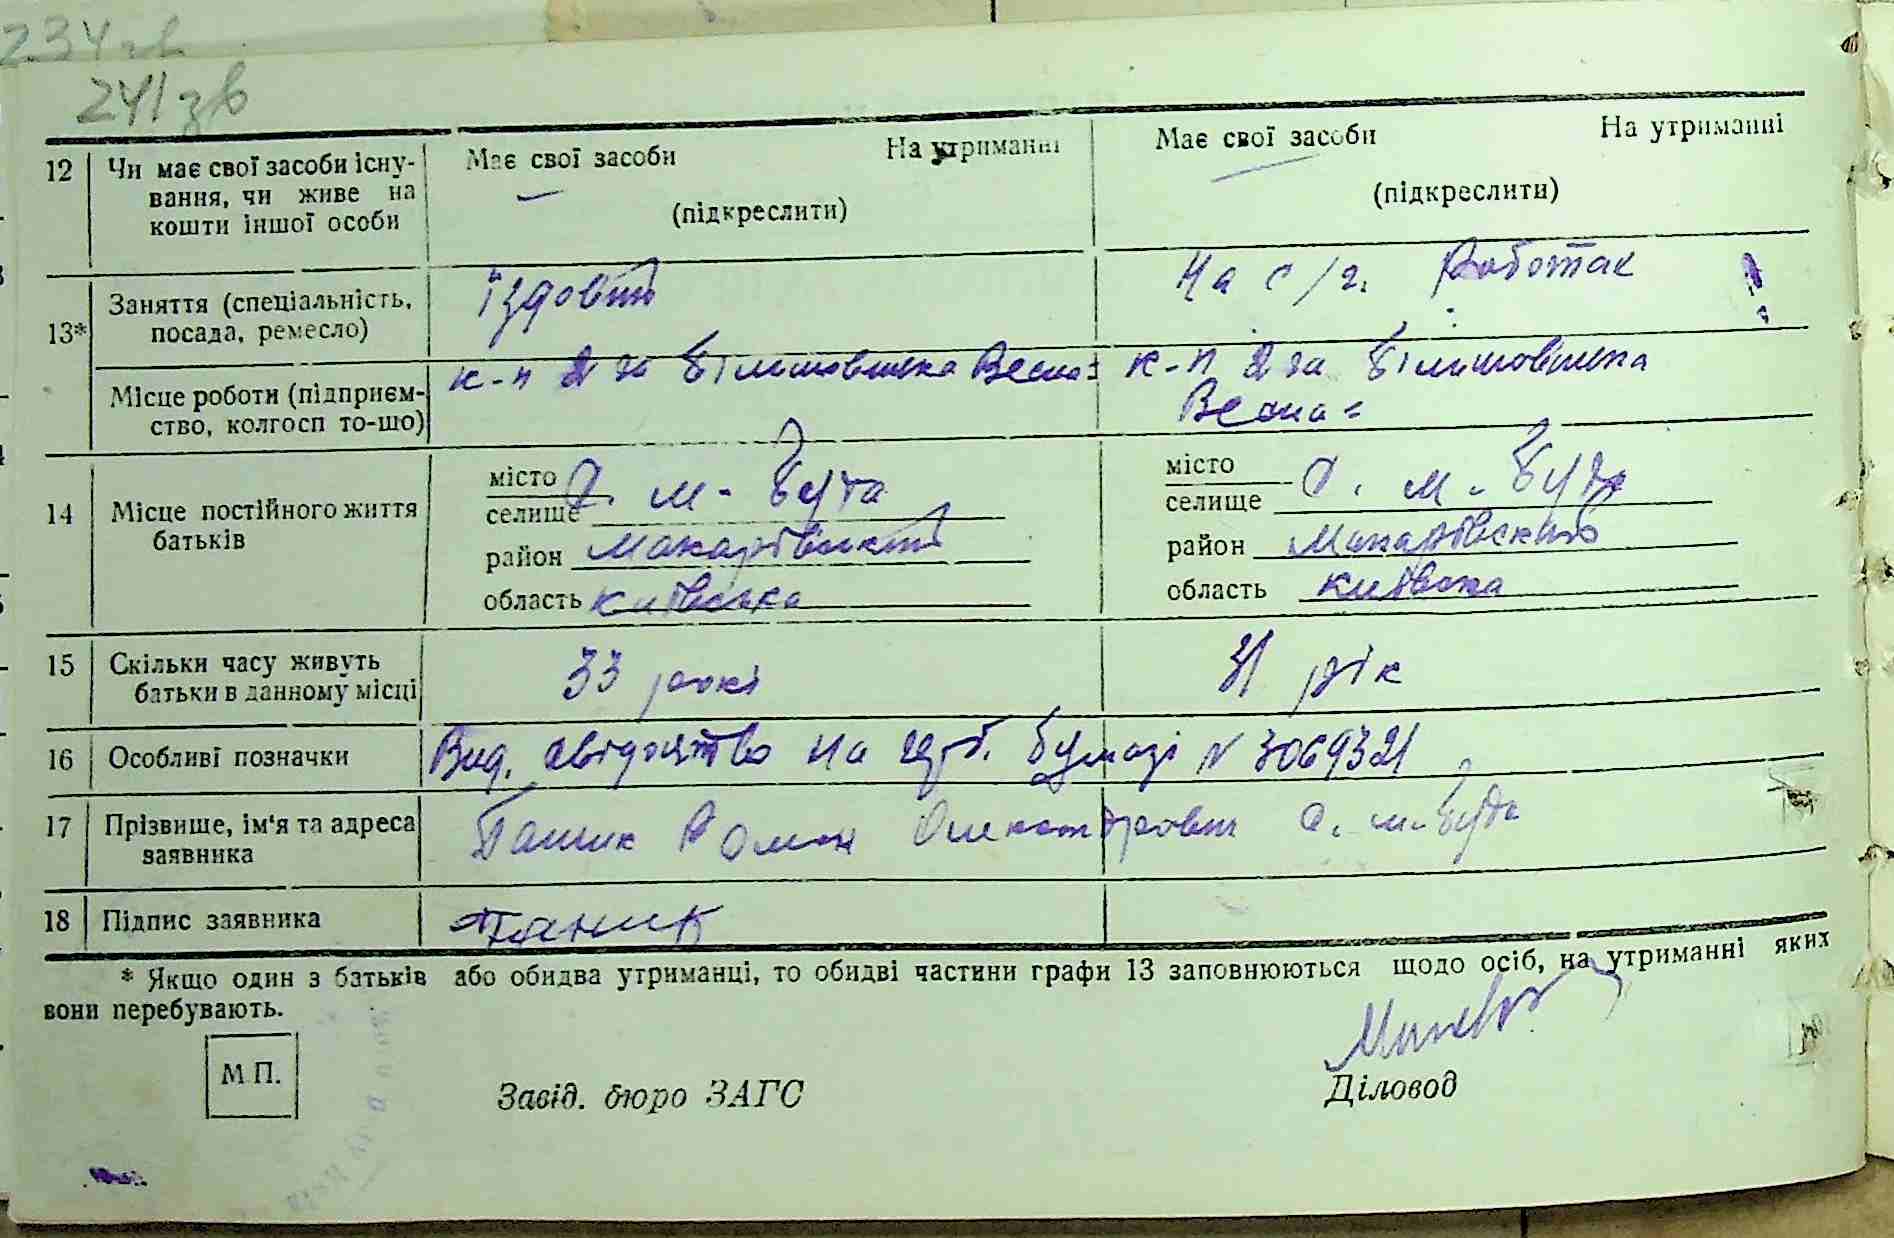 234зв
241зв
12 Чи має свої засоби існування, чи живе на кошти іншої особи
Має свої засоби На утриманні
(підкреслити)
Має свої засоби На утриманні
(підкреслити)
13* Заняття (спеціальність, посада, ремесло)
Їздовий
На с/г. Роботах
Місце роботи (підприємство, колгосп то-що)
к-п 2 га більшовицька Весна
к-п 2 га більшовицька
Весна
14 Місце постійного життя батьків
місто
селище с. М-Буда
район Макарівський
область Київська
місто
селище с. М-Буда
район Макарівський
область Київська
15 Скільки часу живуть батьки в данному місці
33 рокі
31 рік
16 Особливі позначки
Вид. свідоцтво на герб. бумазі N 3069321
17 Прізвище, ім'я та адреса заявника
Роман Олександрович с. М-Буда
18 Підпис заявника
* Якщо один з батьків або обидва утриманці, то обидві частини графи 13 заповнюються щодо осіб, на утриманні яких
вони перебувають.
М.П.
Завід. бюро ЗАГС
Діловод